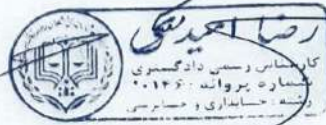 رضا
کارشناس رسمی دادگستری
شماره پروانه : ۰۱۴۶۰
رشته : حسابداری و حسابرسی